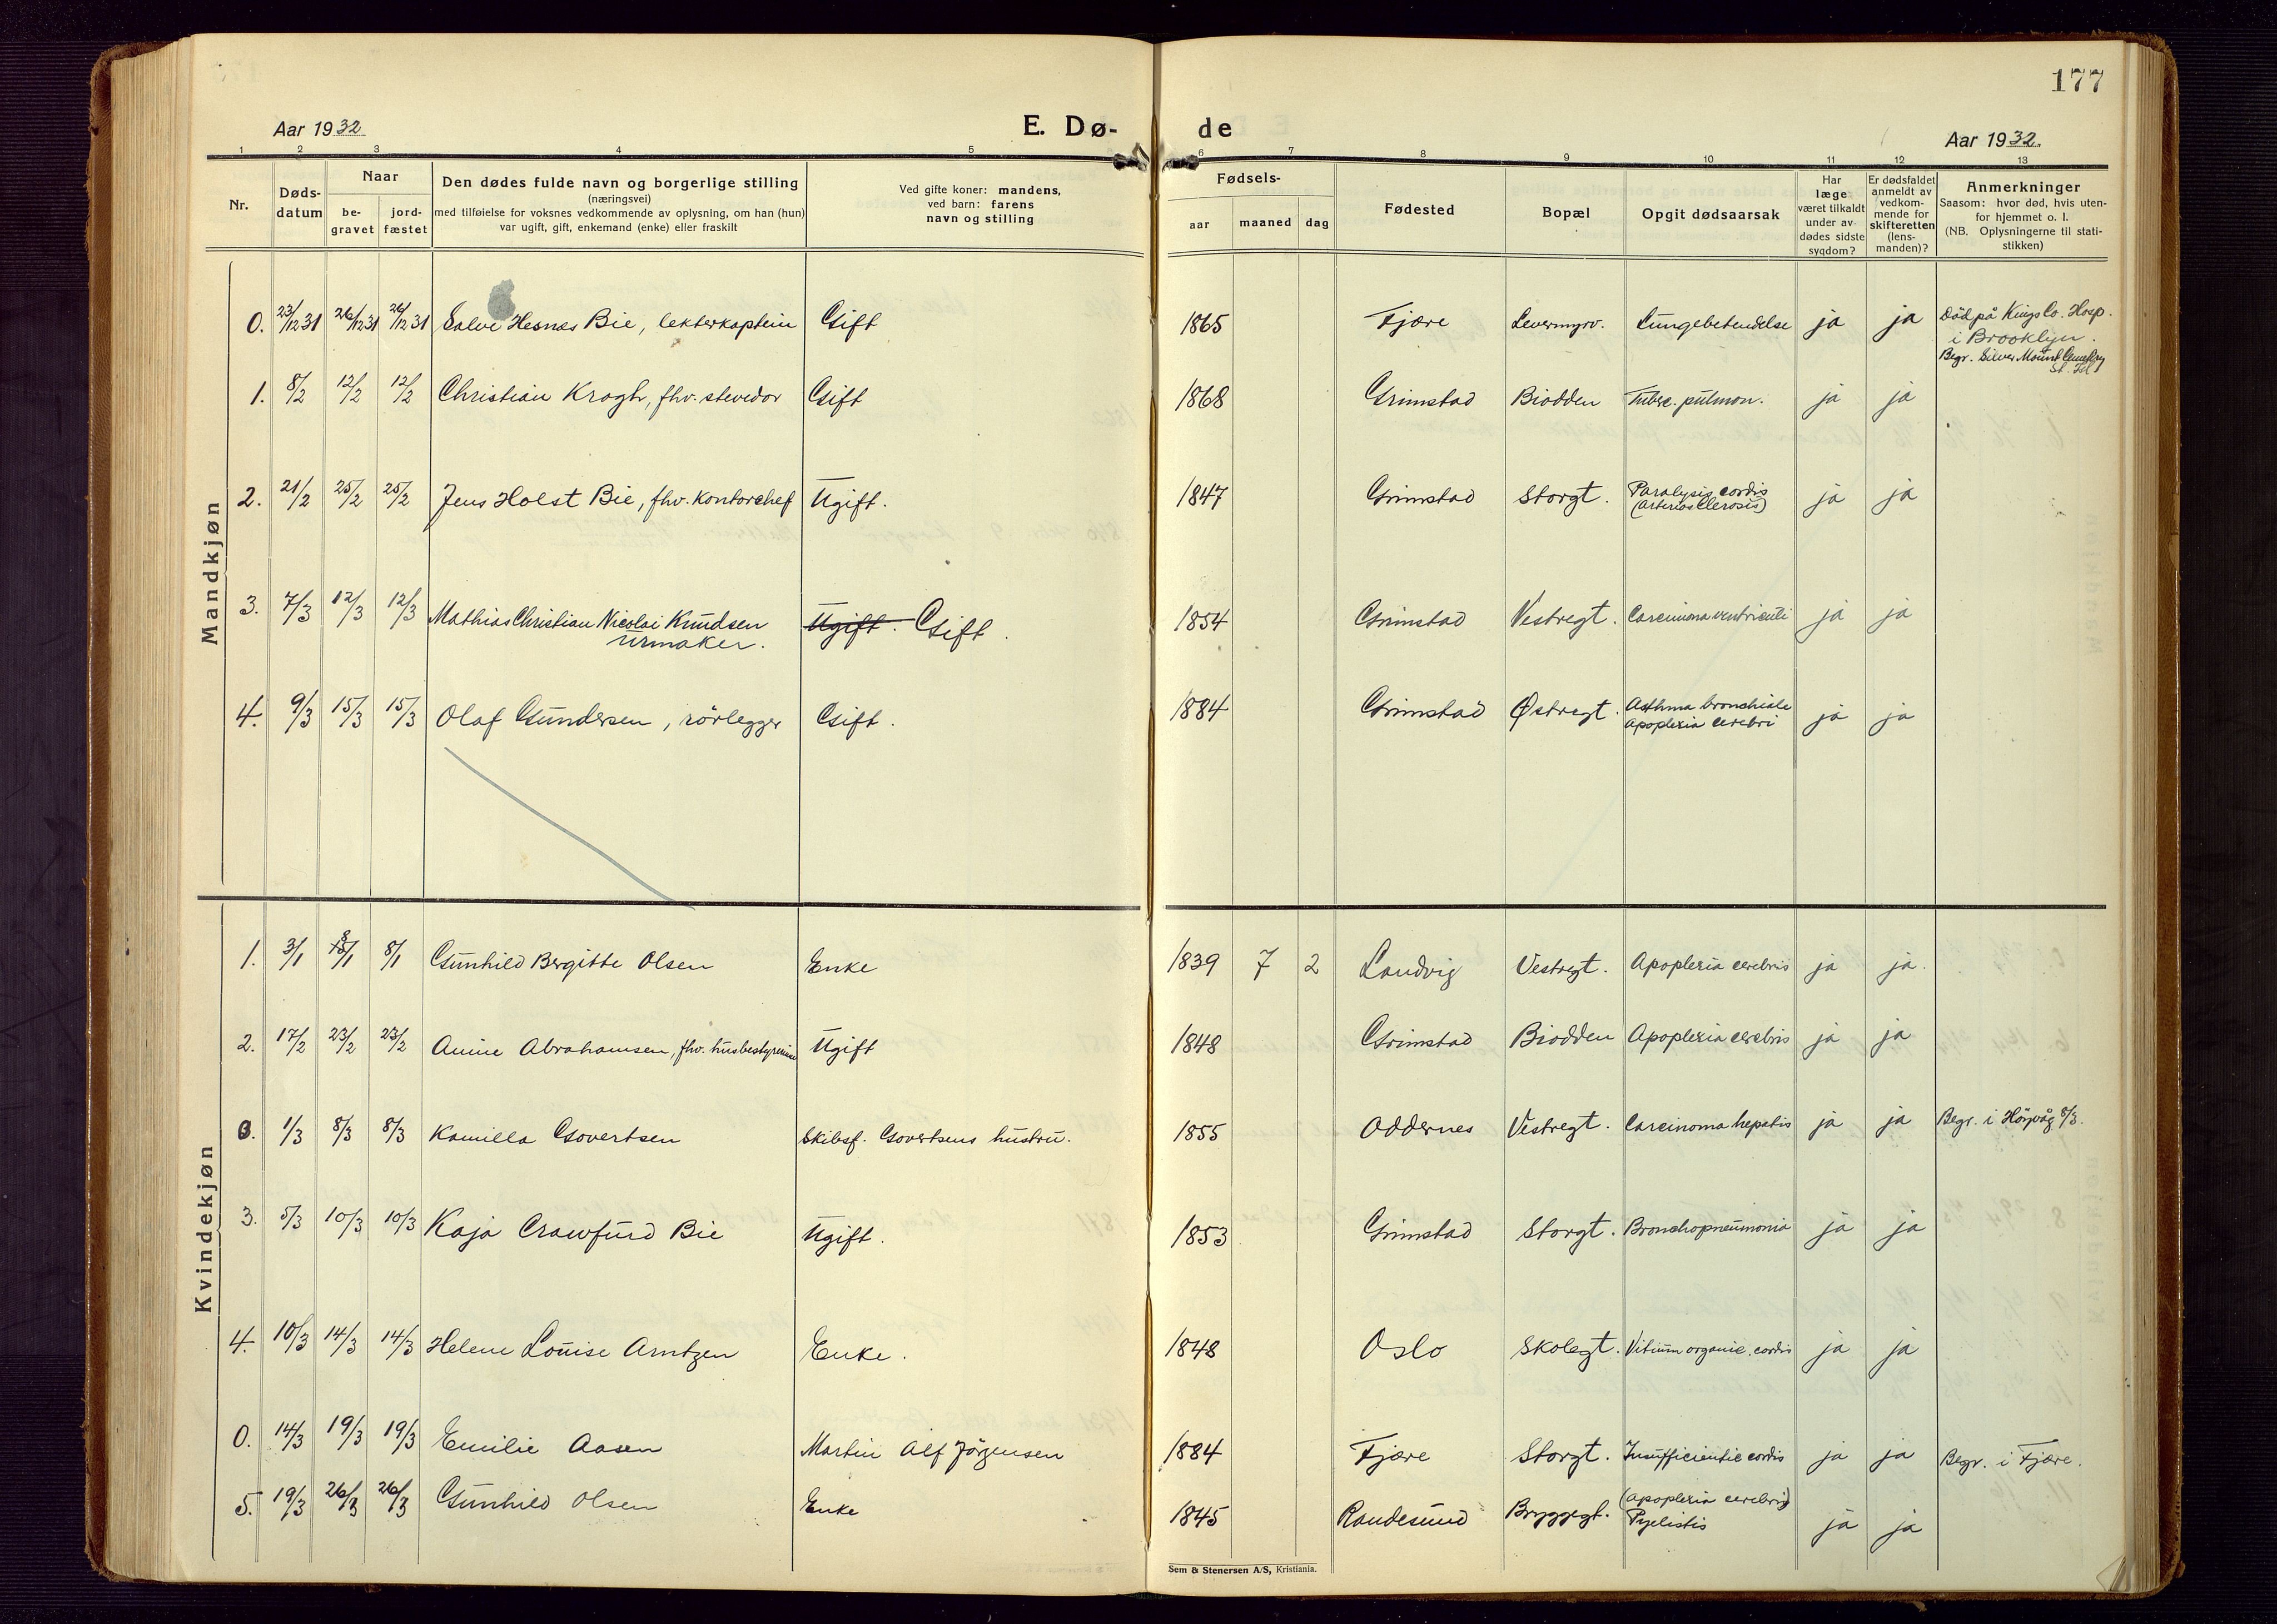 177
Aar 1932
E. Dø-
de
Aar 1932.
1 2 3 4 5 6 7 8 9 10 11 12 13
Nr.
Døds-
datum
Naar
be-
gravet
jord-
fæstet
Den dødes fulde navn og borgerlige stilling
(næringsvei)
med tilføielse for voksnes vedkommende av oplysning, om han (hun)
var ugift, gift, enkemand (enke) eller fraskilt
Ved gifte koner: mandens,
ved barn: farens
navn og stilling
Fødsels-
aar maaned dag
Fødested
Bopæl
Opgit dødsaarsak
Har
læge
været tilkaldt
under av-
dødes sidste
sygdom?
Er dødsfaldet
anmeldt av
vedkom-
mende for
skifteretten
(lens-
manden)?
Anmerkninger
Saasom: hvor død, hvis uten-
for hjemmet o. l.
(NB. Oplysningerne til stati-
stikken)
Mandkjøn
0. 23/12 31 26/12 31 26/12 31 Salve Hesnes Bie, lekterkaptein Gift 1865 Fjære Levermyrv. Lungebetendelse ja ja Död på Kings Co. Hosp.
i Brooklyn.
Begr. Silver Mount Cemetery
St. Isl
1. 8/2 12/2 12/2 Christian Krogh, fhv. stevedor Gift 1868 Grimstad Biodden Tuberc. pulmon. ja ja
2. 21/2 25/2 25/2 Jens Holst Bie, fhv. kontorchef Ugift. 1847 Grimstad Storgt. Paralysis cordis
(arteriosclerosis) ja ja
3. 7/3 12/3 12/3 Mathias Christian Nicolai Knudsen
urmaker. Ugift. Gift. 1854 Grimstad Vestregt. Carcinoma ventriculi ja ja
4. 9/3 15/3 15/3 Olaf Gundersen, rörlegger Gift. 1884 Grimstad Østregt. Asthma bronchiale
Apoplexia cerebri ja ja
Kvindekjøn
1. 3/1 8/1 8/1 Gunhild Bergitte Olsen Enke 1839 7 2 Landvig Vestregt. Apoplexia cerebris ja ja.
2. 17/2 23/2 23/2 Anine Abrahamsen, fhv. husbestyrerinne Ugift 1848 Grimstad Biodden Apoplexia cerebris ja ja
0. 1/3 8/3 8/3 Kamilla Govertsen Skibsf. Govertsens hustru. 1855 Oddernes Vestregt. Carcinoma hepatis ja ja Begr. i Høyvåg 8/3.
3. 5/3 10/3 10/3 Kaja Crawfurd Bie Ugift. 1853 Grimstad Storgt. Bronchopneumonia ja ja
4. 10/3 14/3 14/3 Helene Louise Arntzen Enke. 1848 Oslo Skolegt. Vitium organic. cordis ja ja
0. 14/3 19/3 19/3 Emilie Aasen Martin Alf Jörgensen 1884 Fjære Storgt. Insufficientie cordis ja ja Begr. i Fjære.
5. 19/3 26/3 26/3 Gunhild Olsen Enke 1845 Randesund Bryggegt. (Apoplexia cerebris)
Pyelistis ja ja
Sem & Stenersen A/S, Kristiania.